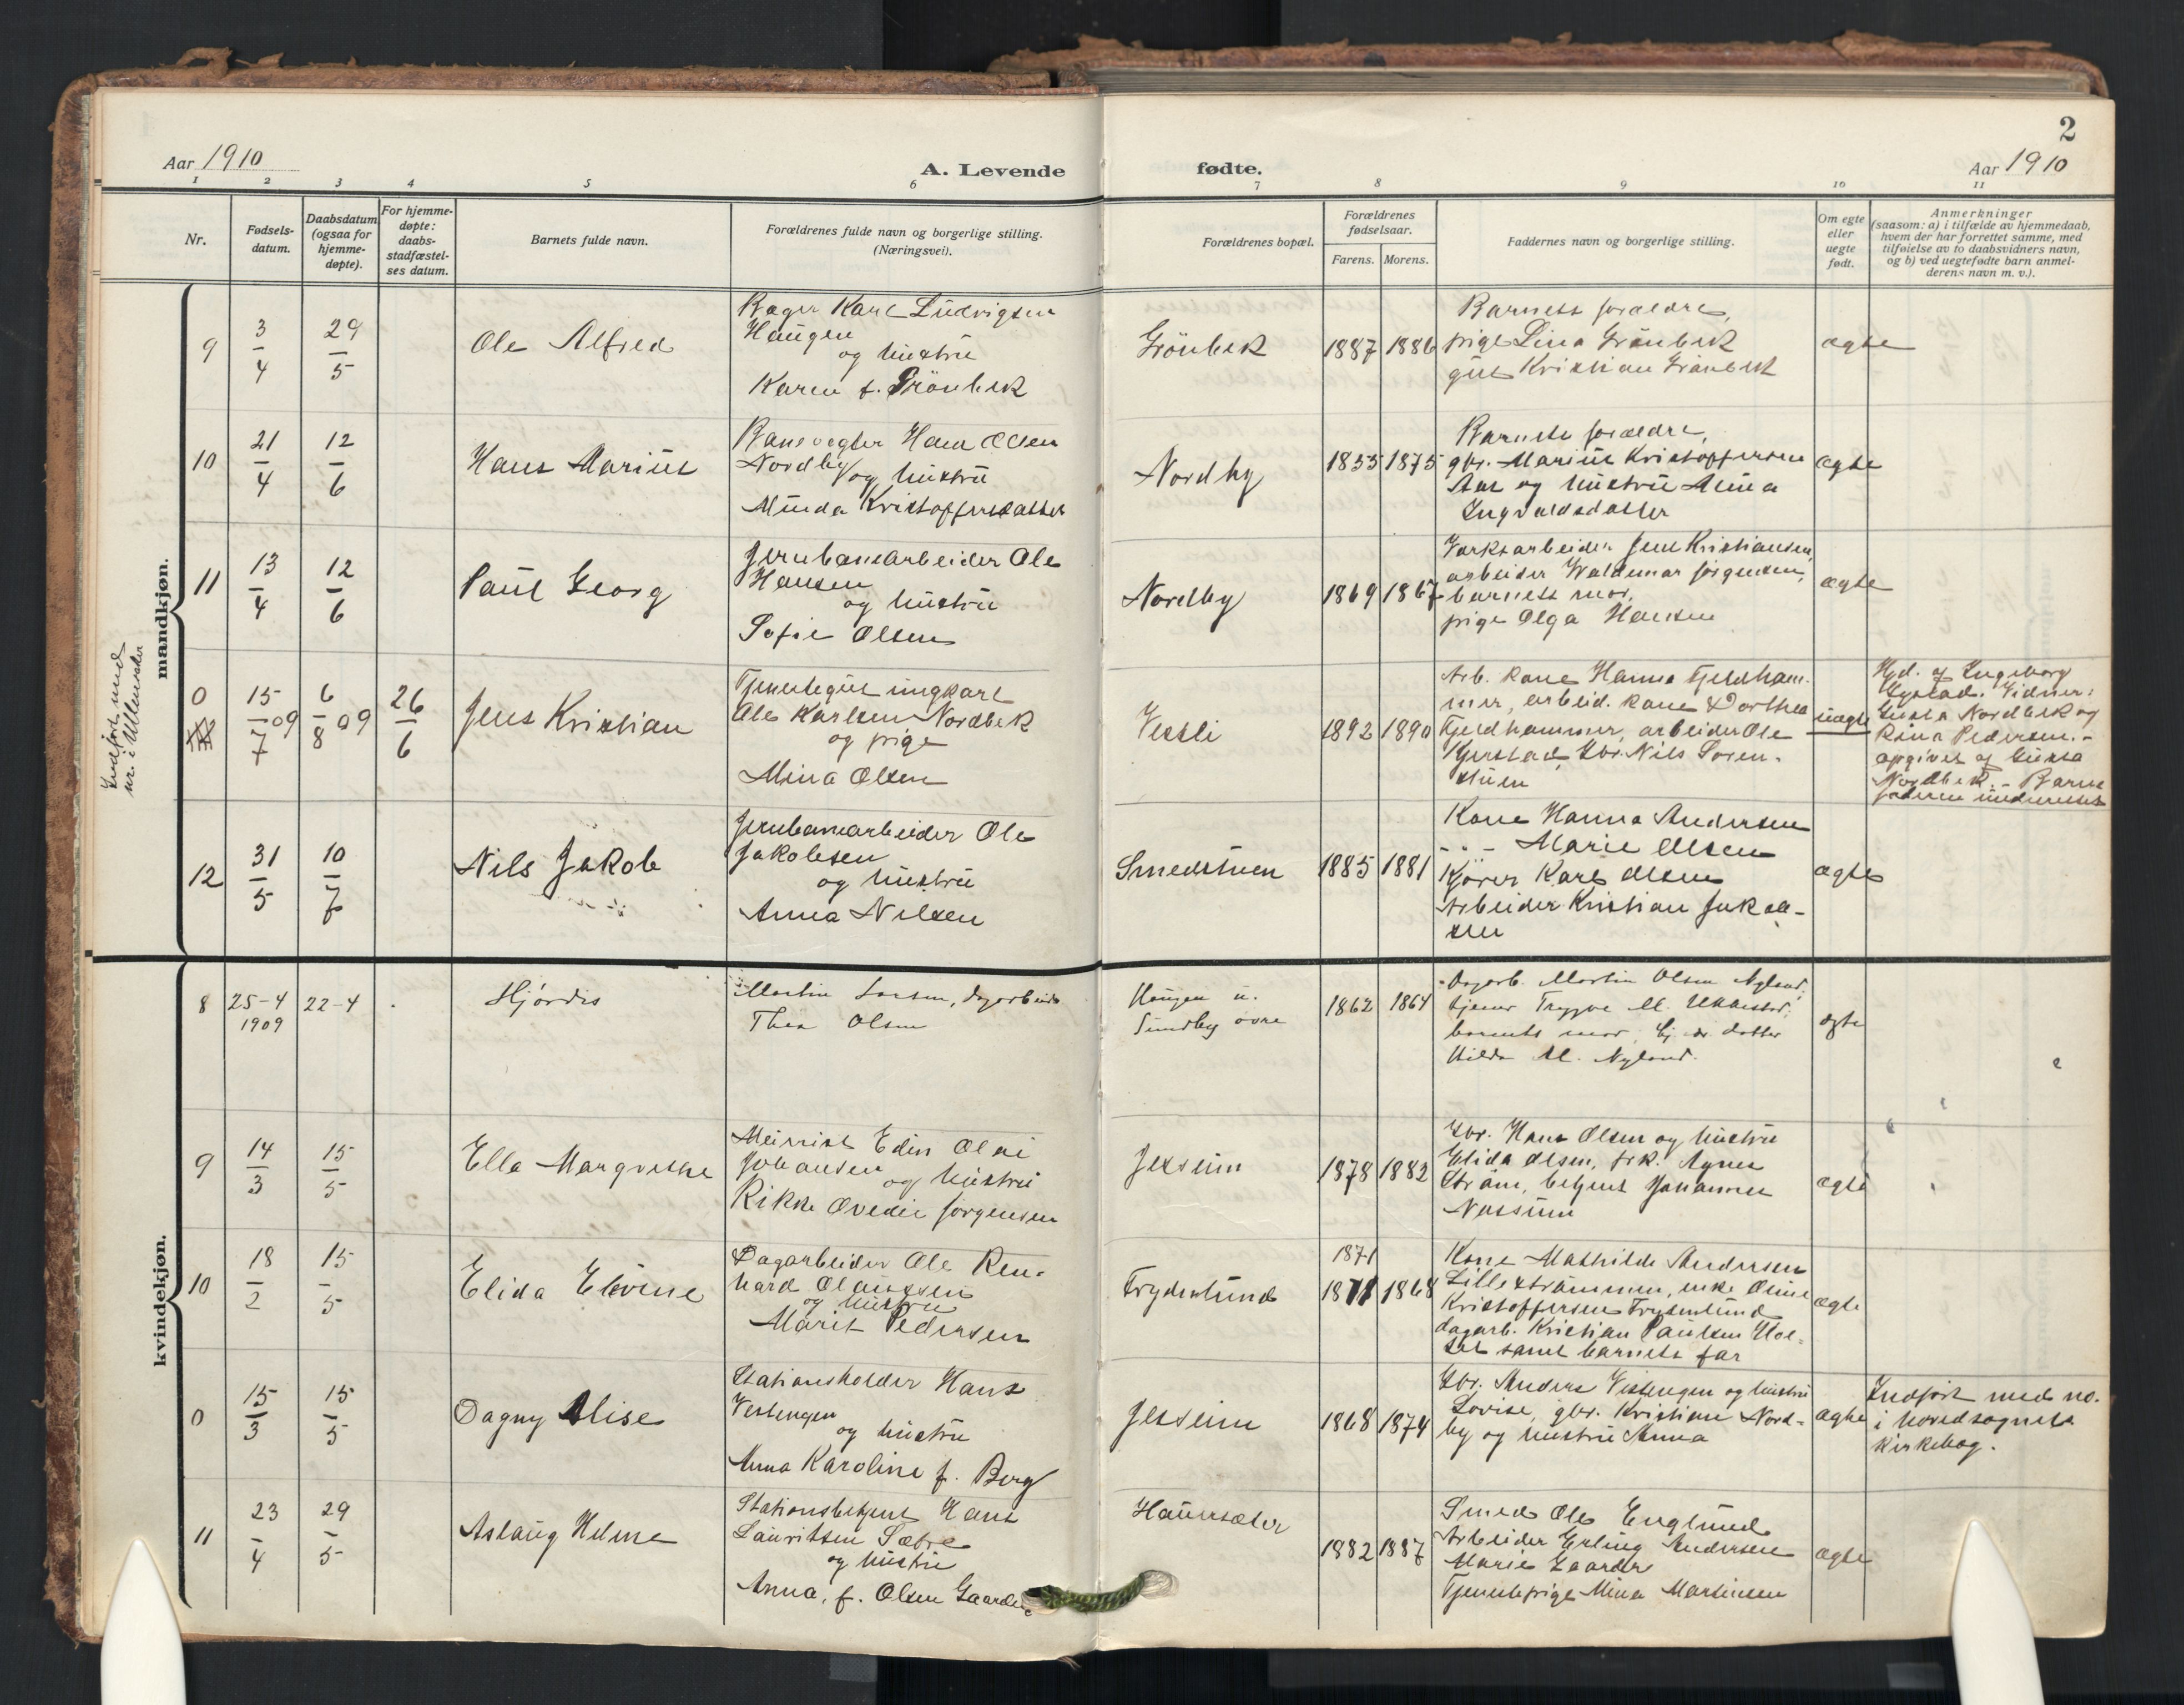 2
Aar 1910
A. Levende
fødte.
Aar 1910
1 2 3 4 5 6 7 8 9 10 11
Nr.
Fødsels-
datum.
Daabsdatum
(ogsaa for
hjemme-
døpte).
For hjemme-
døpte:
daabs-
stadfæstel-
ses datum.
Barnets fulde navn.
Forældrenes fulde navn og borgerlige stilling.
(Næringsvei).
Forældrenes bopæl.
Forældrenes
fødselsaar.
Farens. Morens.
Faddernes navn og borgerlige stilling.
Om egte
eller
uegte
født.
Anmerkninger
(saasom: a) i tilfælde av hjemmedaab,
hvem der har forrettet samme, med
tilføielse av to daabsvidners navn,
og b) ved uegtefødte barn anmel-
derens navn m. v.).
mandkjøn.
9
3/4
29/5
Ole Alfred
Bager Karl Ludvigsen
Haugen
og hustru
Karen f. Grönbek
Grönbek
1887 1886
Barnets forældre,
pige Lina Grönbek
gut Kristian Grönbek
ægte
10
21/4
12/6
Hans Marius
Banevogter Hans Olsen
Nordby
og hustru
Minda Kristoffersdatter
Nordby
1855 1875
Barnets forældre,
gbr. Marius Kristoffersen
Aas og hustru Mina
Ingvaldsdatter
ægte
11
13/4
12/6
Paul Georg
Jernbanearbeider Ole
Hansen
og hustru
Sofie Olsen
Nordby
1869 1867
Verksarbeider Jens Kristiansen,
arbeider Waldemar Jörgensen,
barnets mor,
pige Olga Hansen
ægte
Indført med
nr. i Ullensaker
0
15/7 09
6/8 09
26/6
Jens Kristian
Tjenestegut ungkarl
Ole Karlsen Nordbek
og pige
Mina Olsen
Vesli
1892 1890
Arb. kone Hanna Fjeldham-
mer, arbeid. kone Dorthea
Fjeldhammer, arbeider Ole
Kjerstad, Gbr. Nils Soren-
stuen
uægte
Hjd. af Ingeborg
Vidner:
Gusta Nordbek og
Lina Pedersen. -
opgivet af Gusta
Nordbek. - Barne-
faderen underrettet
12
31/5
10/7
Nils Jakob
Jernbanearbeider Ole
Jakobsen
og hustru
Anna Nilsen
Smedstuen
1885 1881
Kone Hanna Andersen
- - - Marie Olsen
Kjører Karl Olsen
Arbeider Kristian Jakob-
sen
ægte
kvindekjøn.
8
25-4
1909
22-4
Hjördis
Martin Larsen, dagarbeider
Thea Olsen
Haugen u.
Sundby övre
1862 1864
Dagarb. Martin Olsen Nyland,
tjener Trygve M.
barnets mor, Ej. dr. datter
Hilda M. Nyland.
ægte
9
14/3
15/5
Ella Margrethe
Meierist Edin Olai
Johansen
og hustru
Rikke Ovedie Jörgensen
Jessum
1878 1882
Gbr. Hans Olsen og hustru
Elida Olsen, frk. Agnes
Ström, betjent Johannes
Nossum
ægte
10
18/2
15/5
Elida Elvine
Dagarbeider Ole Ren-
hard Olaussen
og hustru
Marit Pedersen
Frydenlund
1871
1871 1868
Kone Mathilde Andersen
Lilleströmmen, enke Oline
Kristoffersen Frydenlund
dagarb. Kristian Paulsen Hol-
set samt barnets far
ægte
0
15/3
15/5
Dagny Alise
Stationsholder Hans
Vestengen
og hustru
Anna Karoline f. Berg
Jessum
1868 1874
Gbr. Anders Vestengen og hustru
Lovise, gbr. Kristian Nord-
by og hustru Anna
ægte
Indført med no.
i hovedsognets
kirkebog.
11
23/4
29/5
Aslaug Helene
Stationsbetjent Hans
Lauritsen Sæbre
og hustru
Anna, f. Olsen Gaarder
Hauersæter
1882 1887
Smed Ole Englund
Arbeider Erling Andersen
Marie Gaarder
Tjenestepige Mina Martinsen
ægte